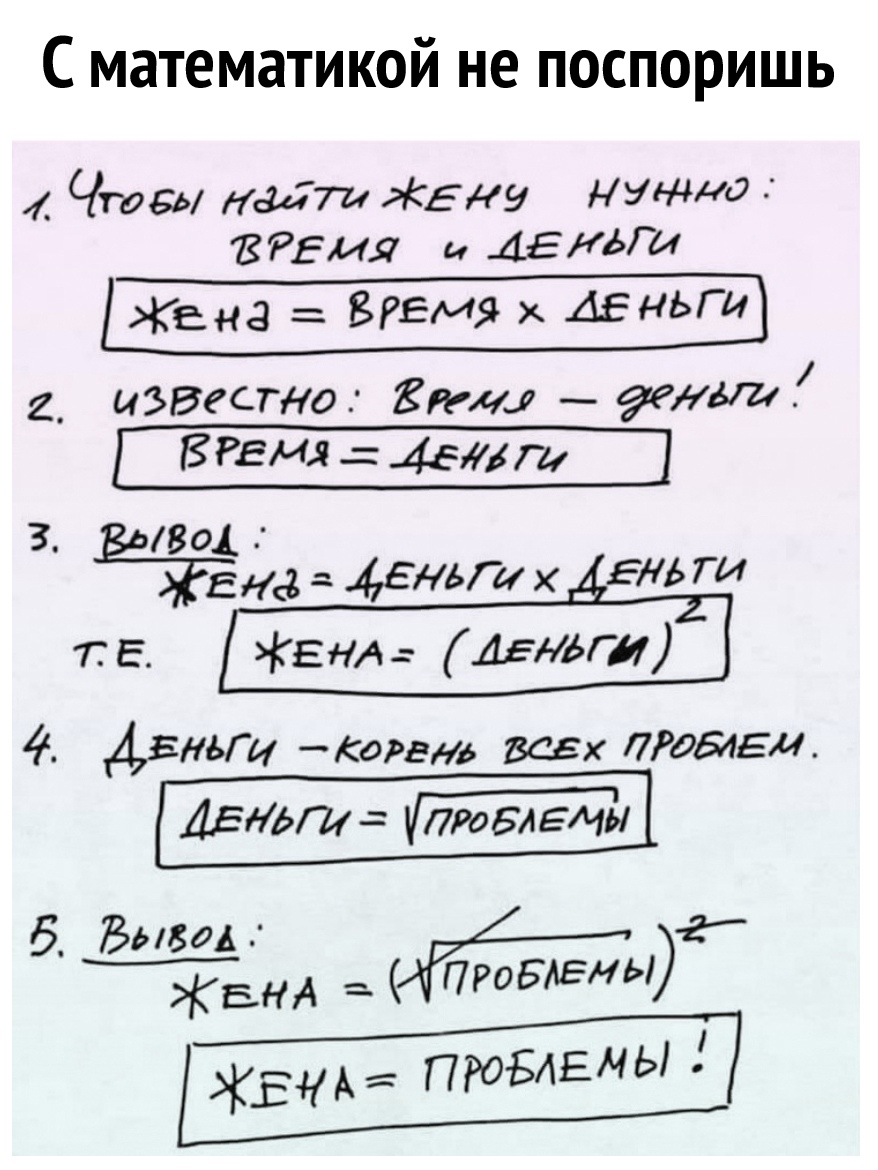 С математикой не поспоришь
1. Чтобы найти жену нужно:
время и деньги
Жена = время x деньги
2. известно: Время – деньги!
время = деньги
3. Вывод:
Жена = деньги x деньги
т.е. жена = (деньги)²
4. Деньги – корень всех проблем.
деньги = √проблемы
5. Вывод:
Жена = (√проблемы)²
Жена = проблемы!